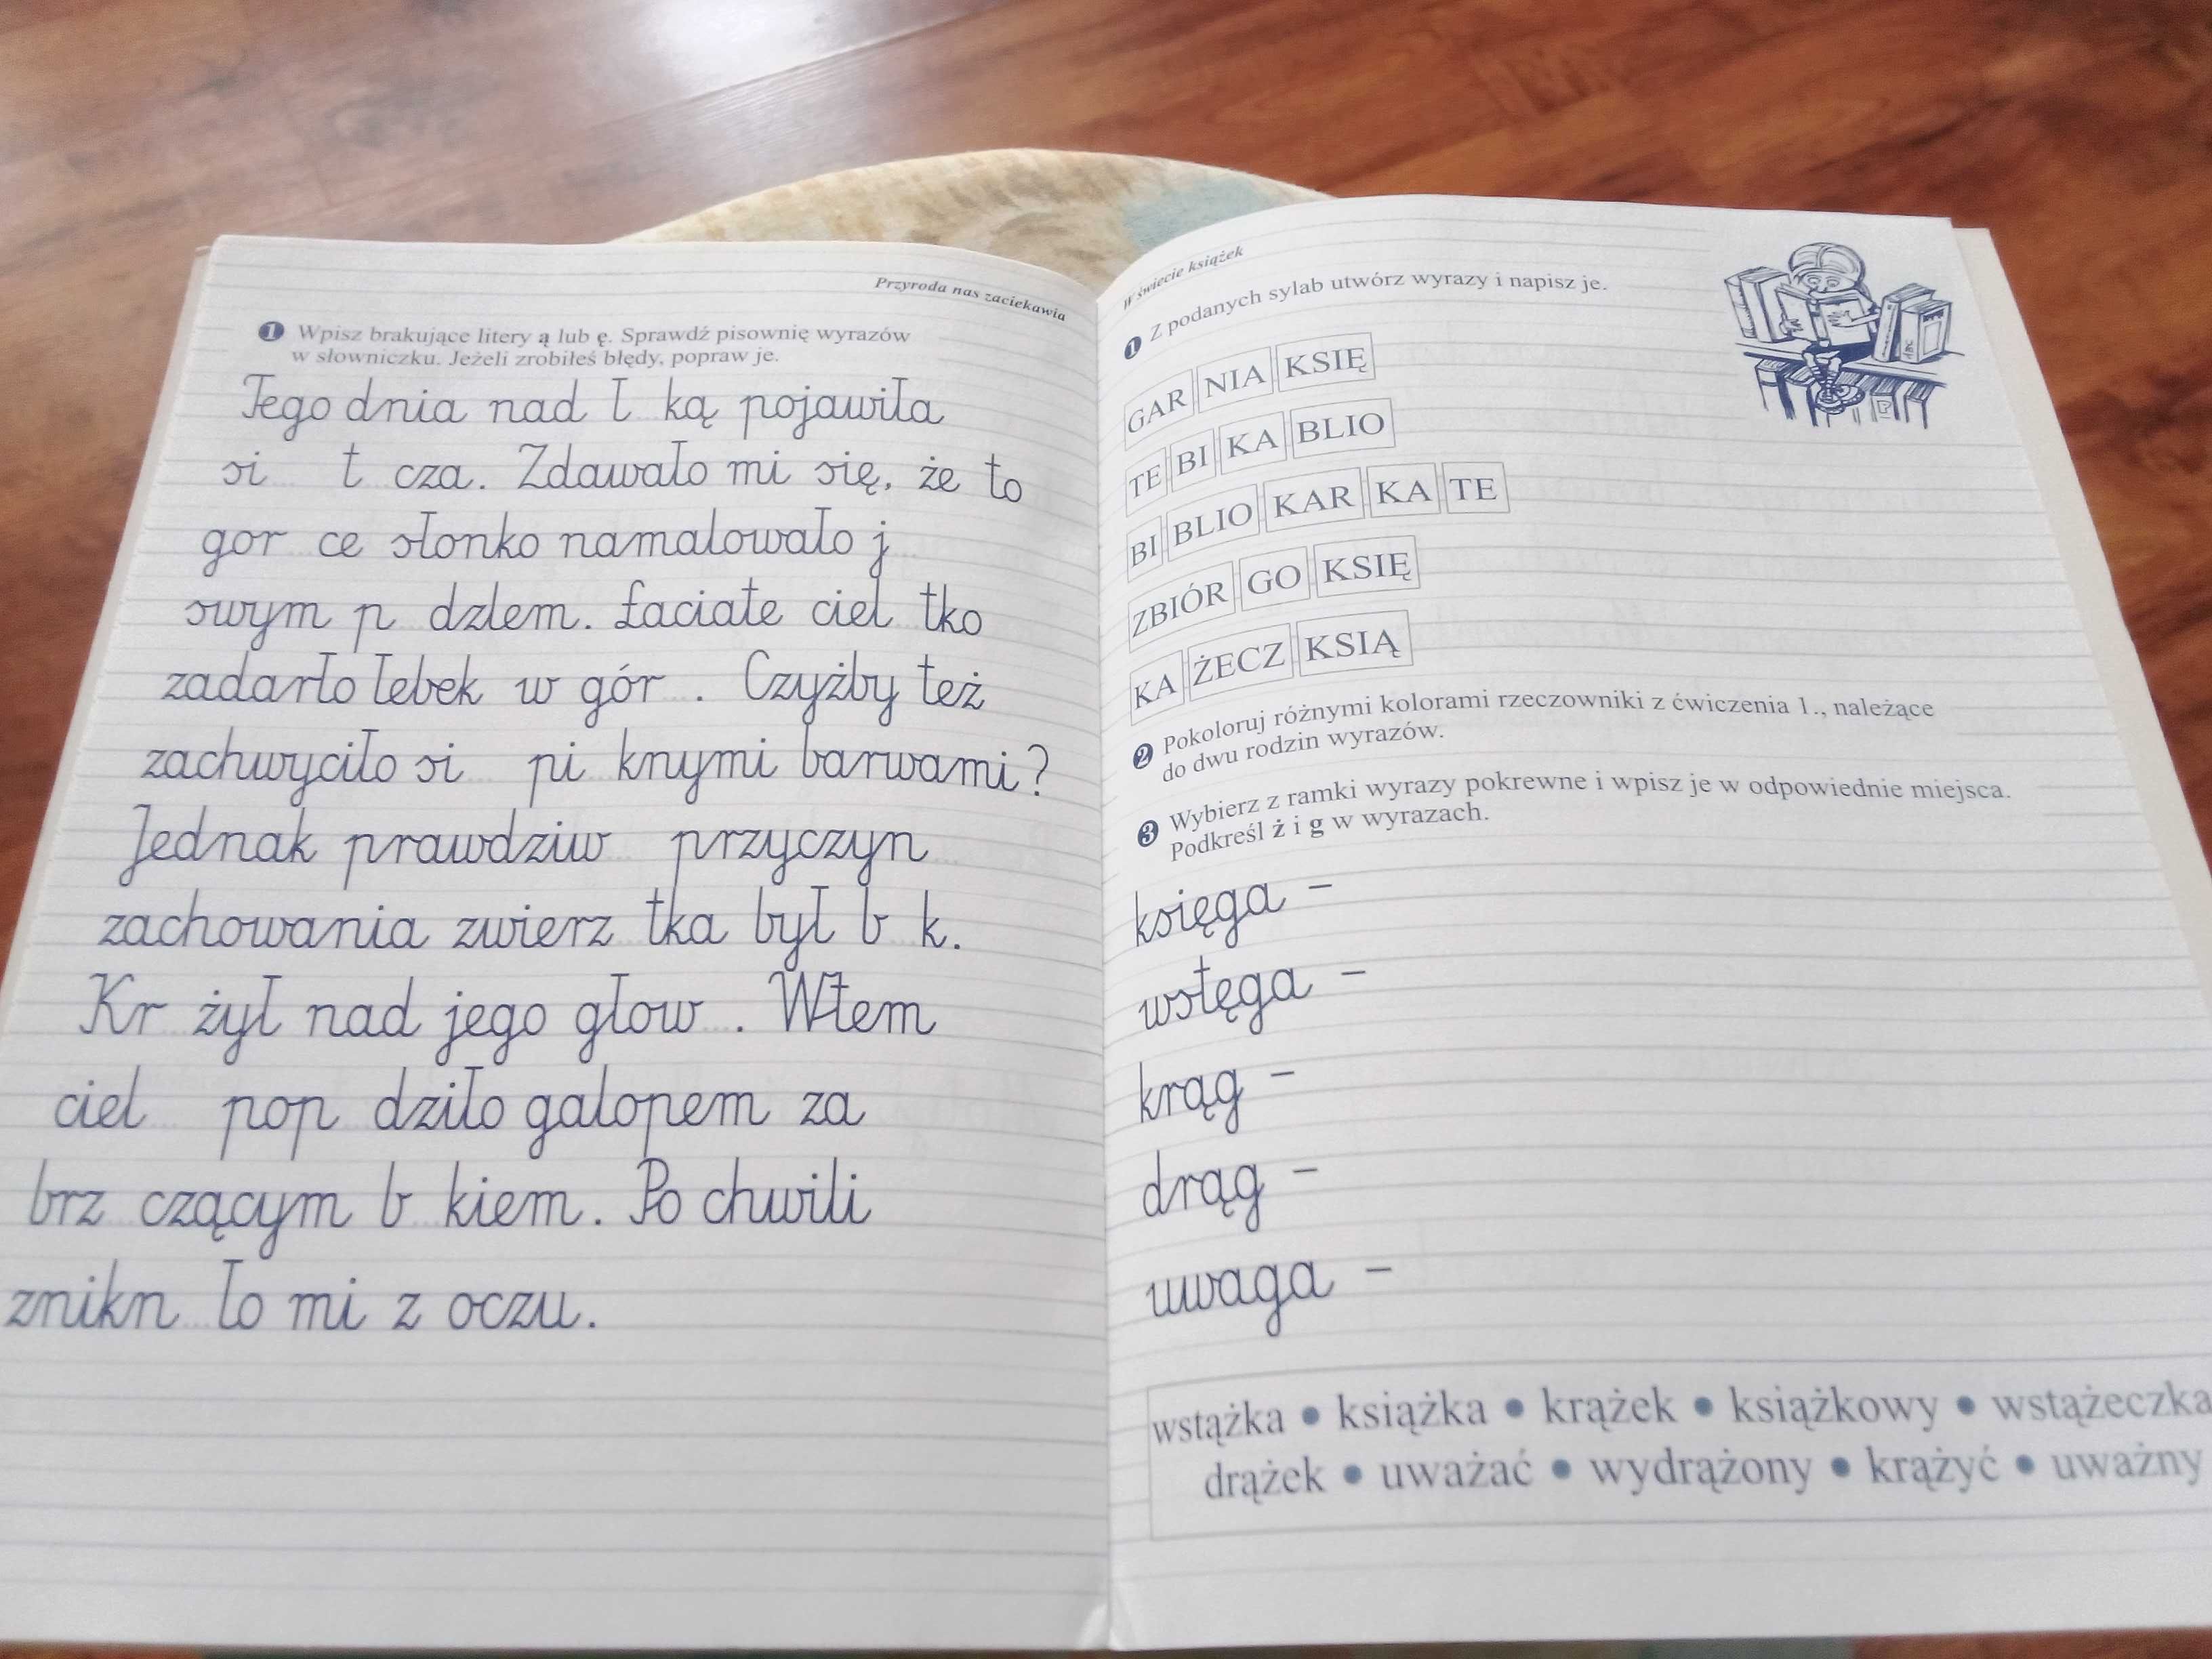 Przyroda nas zaciekawia
1 Wpisz brakujące litery ą lub ę. Sprawdź pisownię wyrazów
w słowniczku. Jeżeli zrobiłeś błędy, popraw je.
Tego dnia nad ł ką pojawiła
si t cza. Zdawało mi się, że to
gor ce słonko namalowało j
swym p dzlem. Łaciate ciel tko
zadarło łebek w gór . Czyżby też
zachwyciło si pi knymi barwami?
Jednak prawdziw przyczyn
zachowania zwierz tka był b k.
Kr żył nad jego głow . Wtem
ciel pop dziło galopem za
brz czącym b kiem. Po chwili
znikn ło mi z oczu.
W świecie książek
1 Z podanych sylab utwórz wyrazy i napisz je.
GAR NIA KSIĘ
TE BI KA BLIO
BI BLIO KAR KA TE
ZBIÓR GO KSIĘ
KA ŻECZ KSIĄ
2 Pokoloruj różnymi kolorami rzeczowniki z ćwiczenia 1., należące
do dwu rodzin wyrazów.
3 Wybierz z ramki wyrazy pokrewne i wpisz je w odpowiednie miejsca.
Podkreśl ż i g w wyrazach.
księga –
wstęga –
krąg –
drąg –
uwaga –
wstążka • książka • krążek • książkowy • wstążeczka
drążek • uważać • wydrążony • krążyć • uważny
ABC